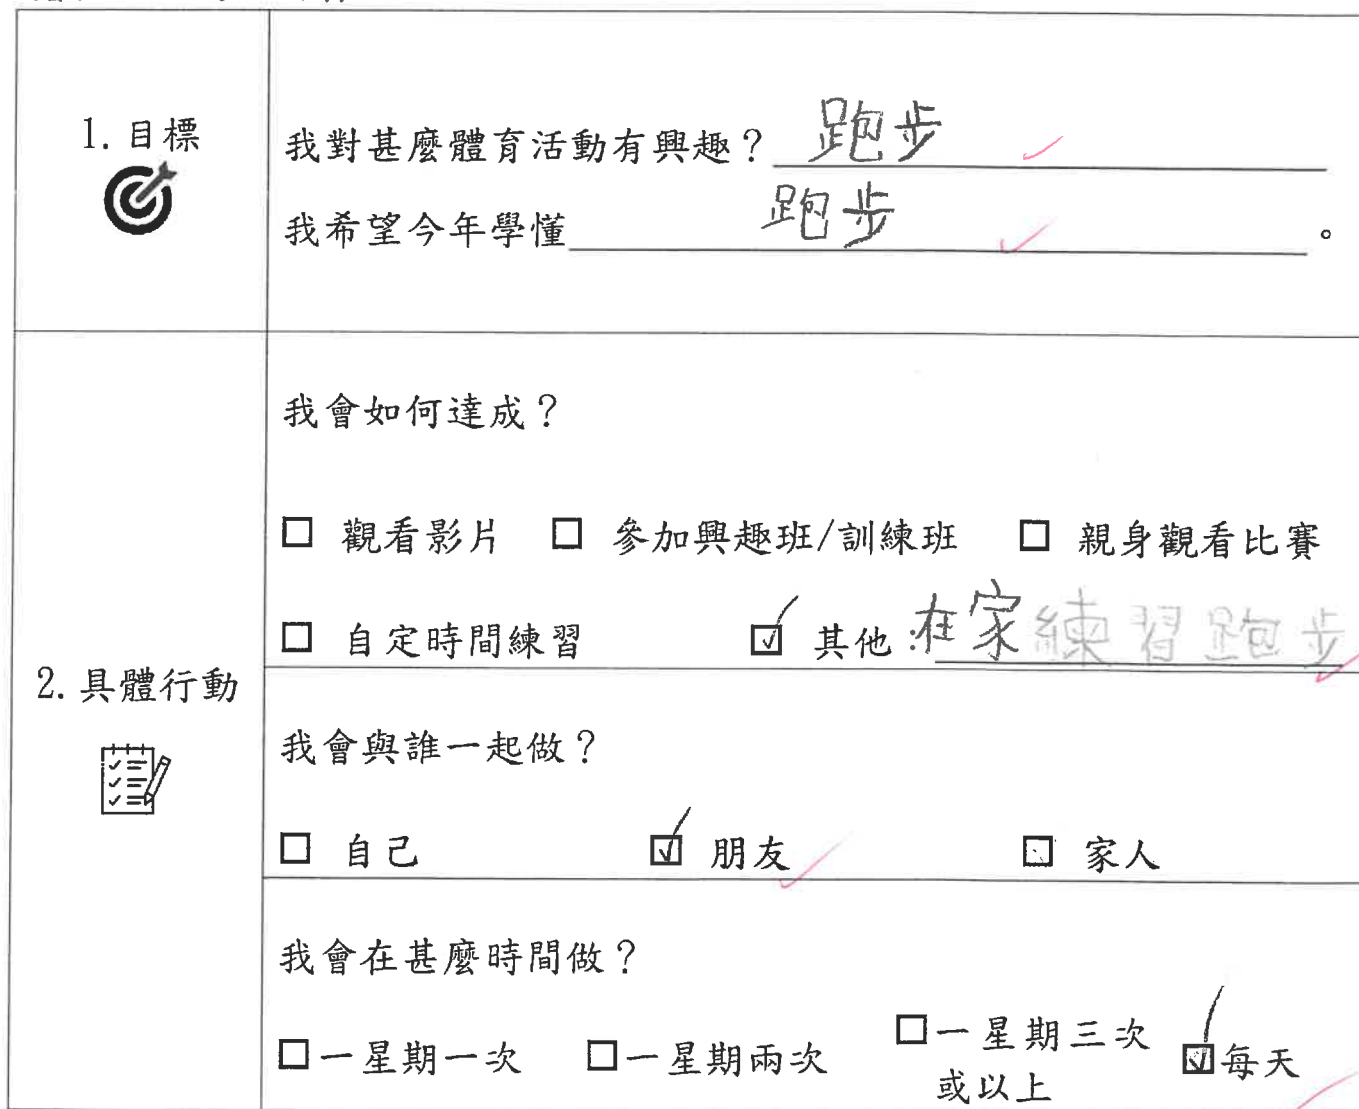 1. 目標
我對甚麼體育活動有興趣？跑步
我希望今年學懂跑步。
2. 具體行動
我會如何達成？
□ 觀看影片 □ 參加興趣班/訓練班 □ 親身觀看比賽
□ 自定時間練習 ☑ 其他:在家練習跑步
我會與誰一起做？
□ 自己 ☑ 朋友 □ 家人
我會在甚麼時間做？
□一星期一次 □一星期兩次 □一星期三次或以上 ☑每天